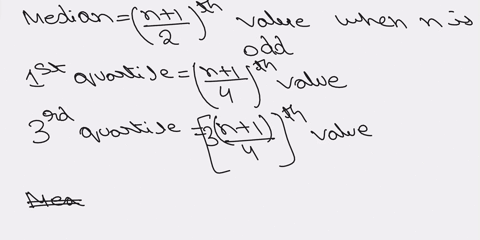 Median = (n+1/2)^th value when n is odd
1^st quartile = (n+1/4)^th value
3^rd quartile = [3(n+1)/4]^th value